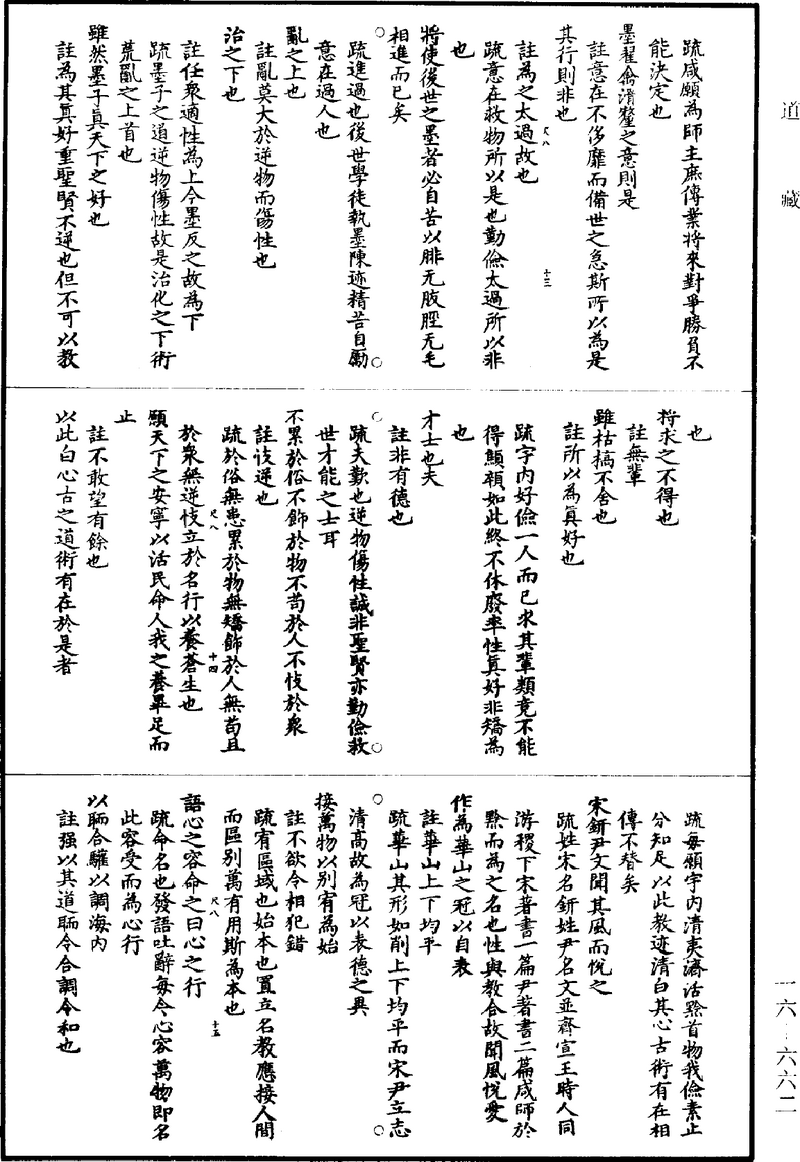 道藏
疏咸願為師主庶傳業將來對爭勝負不
能決定也
墨翟禽滑釐之意則是
註意在不侈靡而備世之急斯所以為是
其行則非也
註為之太過故也
尺八
十三
疏意在救物所以是也勤儉太過所以非
也
將使後世之墨者必自苦以腓无胈脛无毛
相進而已矣
疏進過也後世學徒執墨陳迹精苦自勵
意在過人也
亂之上也
註亂莫大於逆物而傷性也
治之下也
註任衆適性為上今墨反之故為下
疏墨子之道逆物傷性故是治化之下術
荒亂之上首也
雖然墨子真天下之好也
註為其真好重聖賢不逆也但不可以教
也
將求之不得也
註無輩
雖枯槁不舍也
註所以為真好也
疏宇內好儉一人而已求其輩類竟不能
得顦顇如此終不休廢率性真好非矯為
也
才士也夫
註非有德也
疏夫歎也逆物傷性誠非聖賢亦勤儉救
世才能之士耳
不累於俗不飾於物不苟於人不忮於衆
註忮逆也
疏於俗無患累於物無矯飾於人無苟且
尺八
十四
於衆無逆忮立於名行以養蒼生也
願天下之安寧以活民命人我之養畢足而
止
註不敢望有餘也
以此白心古之道術有在於是者
疏每願宇內清夷濟活黔首物我儉素止
分知足以此教迹清白其心古術有在相
傳不替矣
宋鈃尹文聞其風而悅之
疏姓宋名鈃姓尹名文並齊宣王時人同
游稷下宋著書一篇尹著書二篇咸師於
黔而為之名也性與教合故聞風悅愛
作為華山之冠以自表
註華山上下均平
疏華山其形如削上下均平而宋尹立志
清高故為冠以表德之異
接萬物以別宥為始
註不欲令相犯錯
疏宥區域也始本也置立名教應接人間
而區別萬有用斯為本也
尺八
十五
語心之容命之曰心之行
疏命名也發語吐辭每令心容萬物即名
此容受而為心行
以聏合驩以調海內
註强以其道聏令合調令和也
一六－六六二